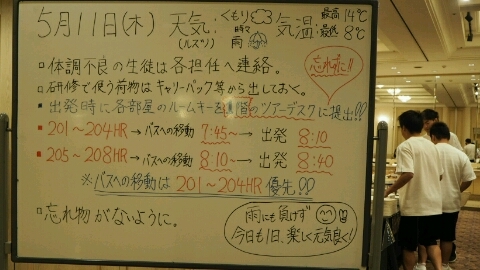 5月11日(木) 天気:くもり 時々 雨 気温:最高14℃ 最低8℃
(ルスツ)
□体調不良の生徒は各担任へ連絡。
□研修で使う荷物はキャリーバック等から出しておく。
忘れずに!!
▪出発時に各部屋のルームキーを1階のツアーデスクに提出!!
▪201〜204HR→バスへの移動 7:45〜→出発 8:10
▪205〜208HR→バスへの移動 8:10〜→出発 8:40
※バスへの移動は201〜204HR優先!!
□忘れ物がないように。
雨にも負けず
今日も1日、楽しく元気良く!